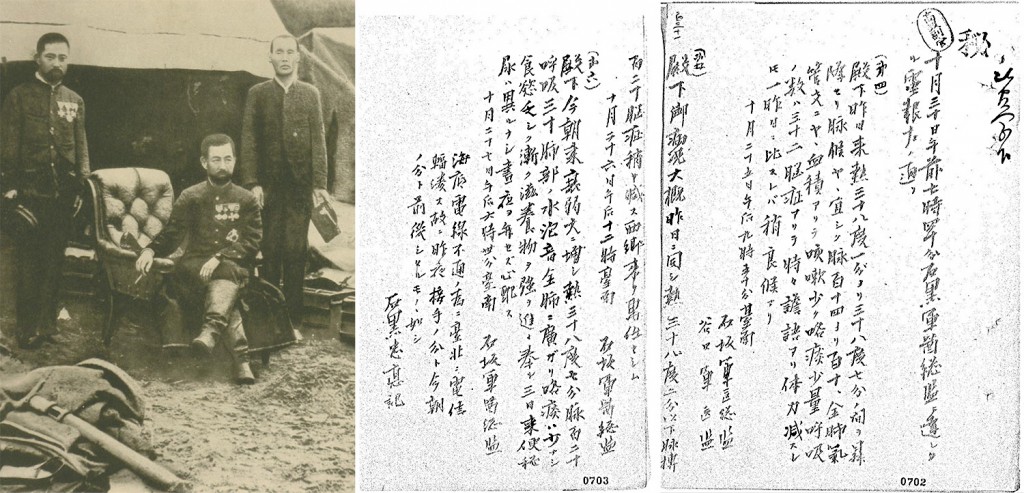 秘
十月三十日午前七時
石黒軍醫総監ヨリ達シタル
電報左ノ通
(第四)
殿下昨日来熱三十八度一分ヨリ三十八度七分ノ間ヲ昇
降セリ脉候ヤヤ宜シク脉百十四ヨリ百二十、全肺氣
管支ニヤヤ血積アリテ咳嗽少ク咯痰少量呼吸
ノ数ハ三十二脳症アリテ時々譫語アリ体力減スレ
モ一昨日ニ比スレバ稍良候アリ
十月二十五日午后九時五十分臺南
石坂軍医総監
谷口軍医監
(第五)
殿下御病況大概昨日ニ同シ熱三十八度二分以下脉搏
0702
百二十脳症稍々減ス西郷来リ
十月二十六日午后十二時臺南 石坂軍醫総監
(第六)
殿下今朝来衰弱大ニ増シ熱三十八度七分脉百二十
呼吸三十肺部ノ水泡音全肺ニ廣ガリ咯痰ハ少ナシ
食慾乏シク漸ク滋養物ヲ強テ進メ奉ル三日来便秘
尿ハ異ルナシ晝夜
心配ス
十月二十七日午后六時廿分臺南 石坂軍醫総監
海底電線不通ノ為ニ臺北ニ電信
輻湊ス故ニ昨夜接手ノ分ト今朝
ノ分ト前後シシモノノ如シ
石黒忠悳記
0703